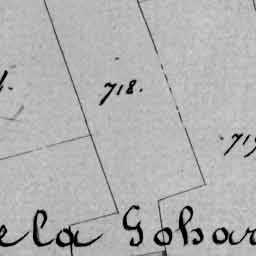 718.
ela Gobar